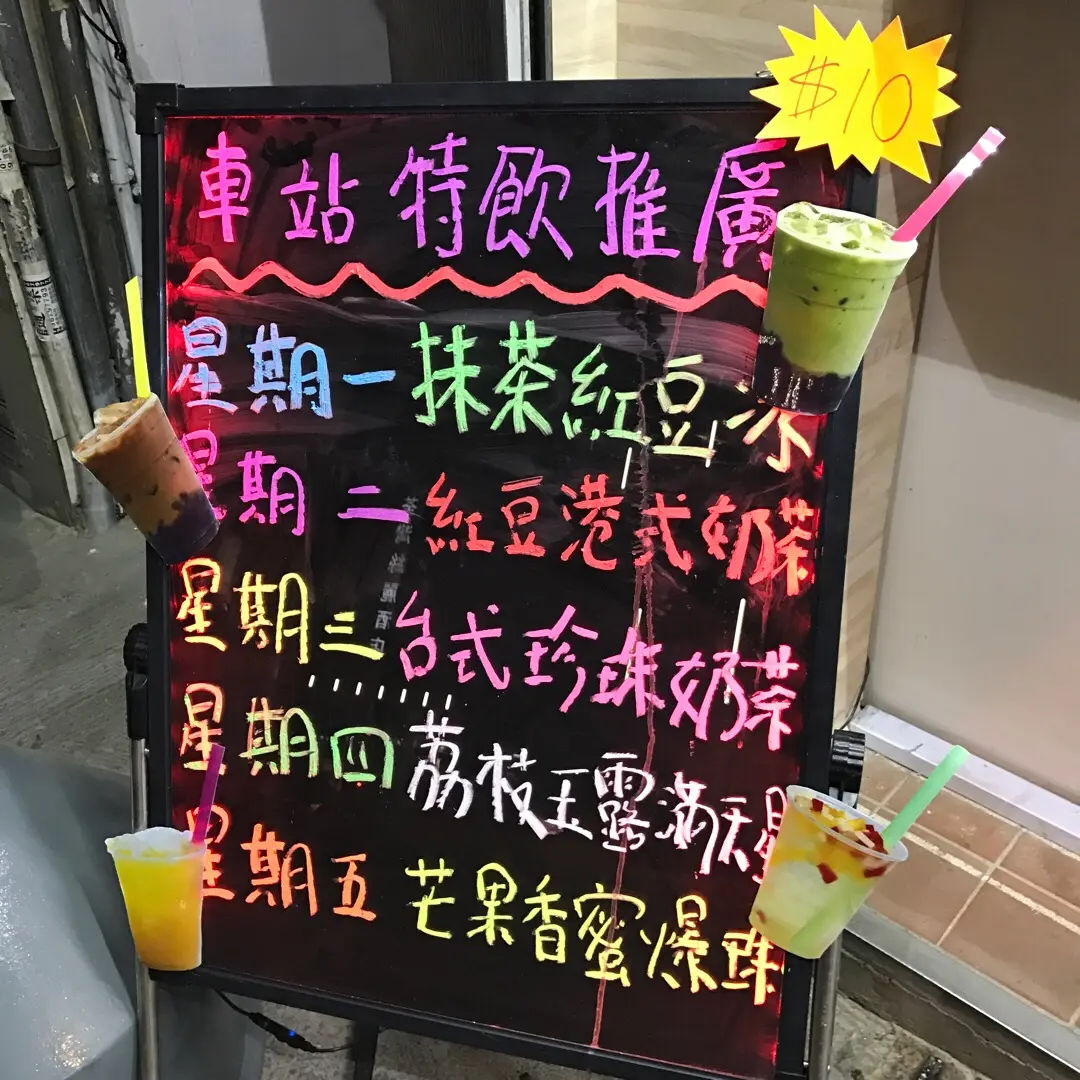 $10
車站特飲推廣
星期一 抹茶紅豆冰
星期二 紅豆港式奶茶
星期三 台式珍珠奶茶
星期四 荔枝玉露滿天星
星期五 芒果香蜜爆珠